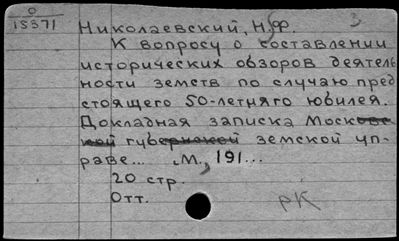 0
15371
Николаевский, Н.Ф. 3
К вопросу о составлении
исторических обзоров деятель
ности земств по случаю пред
стоящего 50-летняго юбилея.
Докладная записка Московс
кой губернской земской уп-
раве... М., 191...
20 стр.
Отт.
РК